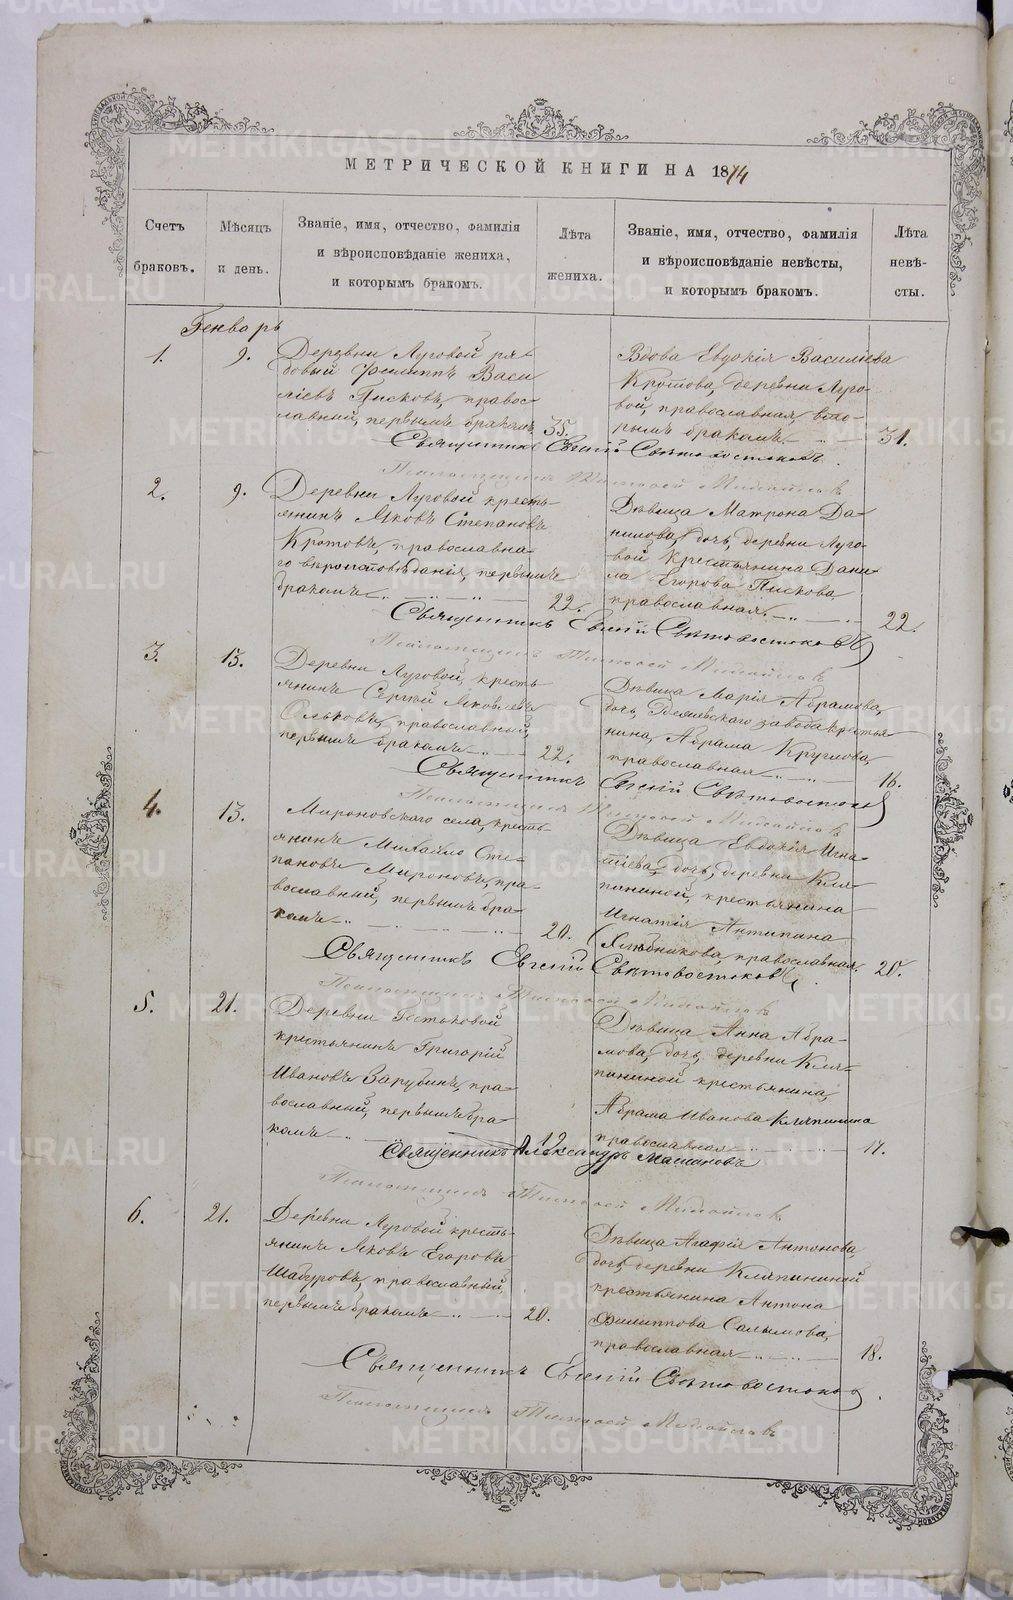 МЕТРИЧЕСКОЙ КНИГИ НА 1874
Счетъ браковъ.
Мѣсяцъ и день.
Званіе, имя, отчество, фамилія
и вѣроисповѣданіе жениха,
и которымъ бракомъ.
Лѣта жениха.
Званіе, имя, отчество, фамилія
и вѣроисповѣданіе невѣсты,
и которымъ бракомъ.
Лѣта невѣ-
сты.
Генварь
1.
9.
Деревни Луговой ря-
довый Филиппъ Васи
ліевъ Писковъ, правос-
лавный, первымъ бракомъ
35.
Вдова Евдокія Василіева
Кротова, деревни Луго-
вой, православная, вто-
рымъ бракомъ.
31.
Священникъ Евгеній Свѣтовостоковъ
2.
9.
Деревни Луговой кресть-
янинъ Яковъ Степановъ
Кротовъ, православна-
го вѣроисповѣданія, первымъ
бракомъ
22.
Дѣвица Матрона Да-
нилова, дочь, деревни Луго-
вой крестьянина Дани-
ла Егорова Пискова,
православная.
22.
Священникъ Евгеній Свѣтовостоковъ
3.
13.
Деревни Луговой, кресть
янинъ Сергѣй Яковлевъ
Ольковъ, православный,
первымъ бракомъ
22.
Дѣвица Марія Абрамова,
дочь, завода крестья
нина, Абрама Круглова,
православная
16.
Священникъ Евгеній Свѣтовостоковъ
4.
13.
Мироновскаго села, кресть-
янинъ Михайло Сте-
пановъ Мироновъ, пра-
вославный, первымъ бра-
комъ
20.
Дѣвица Евдокія Игна-
тіева, дочь, деревни Кля-
пининой, крестьянина
Игнатія Антипина
Хлѣбникова, православная.
20.
Священникъ Евгеній Свѣтовостоковъ
5.
21.
Деревни
крестьянинъ Григорій
Ивановъ Зарубинъ, пра-
вославный, первымъ бра-
комъ
19
Дѣвица Анна Абра-
мова, дочь, деревни Кля-
пининой крестьянина,
Абрама Иванова Кляпинина
православная
17.
Священникъ Александръ
6.
21.
Деревни Луговой кресть-
янинъ Яковъ Егоровъ
Шабуровъ, православный,
первымъ бракомъ
20.
Дѣвица Агафія Антонова,
дочь, деревни Кляпининой
крестьянина Антона
Филиппова
православная
18.
Священникъ Евгеній Свѣтовостоковъ
METRIKI.GASO-URAL.RU